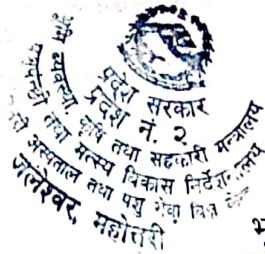 प्रदेश सरकार
प्रदेश नं. २
भूमि व्यवस्था, कृषि तथा सहकारी मन्त्रालय
पशुपन्छी तथा मत्स्य विकास निर्देशनालय
अस्पताल तथा पशु सेवा विज्ञ केन्द्र
जलेश्वर, महोत्तरी